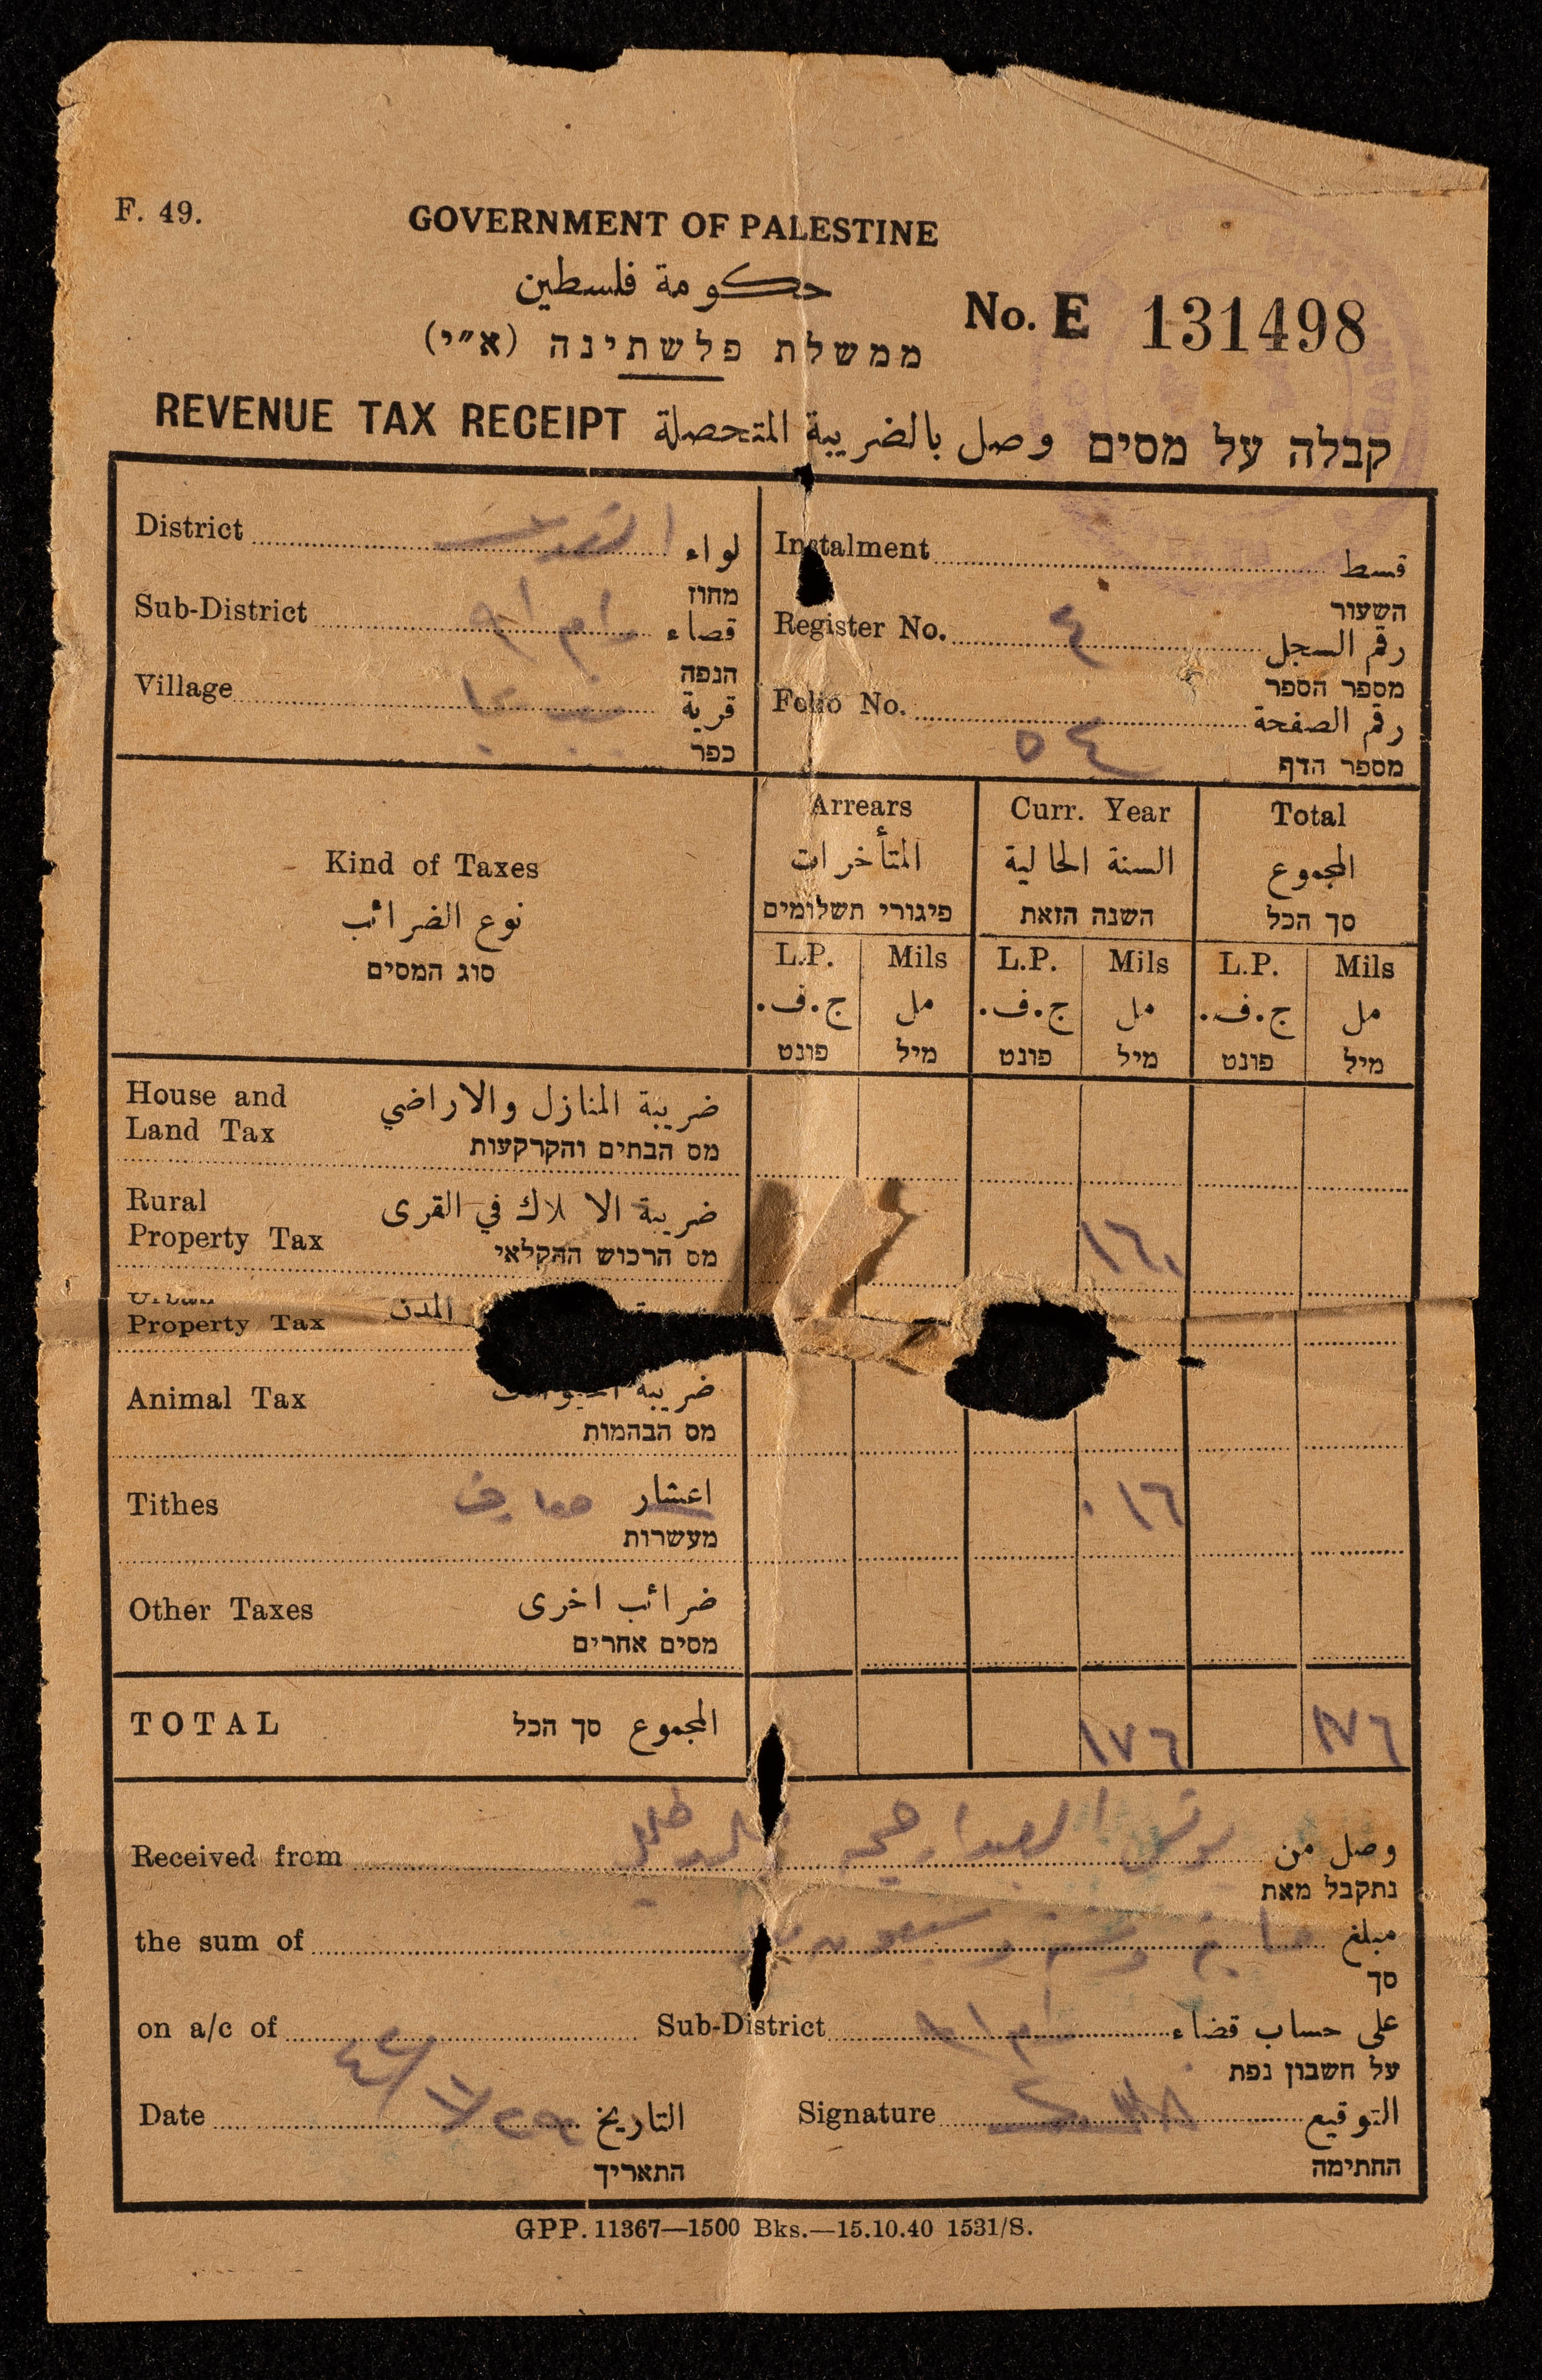 F. 49.
GOVERNMENT OF PALESTINE
حكومة فلسطين
ממשלת פלשתינה (א״י)
No. E 131498
REVENUE TAX RECEIPT وصل بالضريبة المتحصلة קבלה על מסים
District القدس لواء
מחוז
Sub-District رام الله قضاء
הנפה
Village قرية
כפר
Instalment قسط
השעור
Register No. ٤ رقم السجل
מספר הספר
Folio No. ٥٤ رقم الصفحة
מספר הדף
Kind of Taxes
نوع الضرائب
סוג המסים
Arrears Curr. Year Total
المتأخرات السنة الحالية المجموع
פיגורי תשלומים השנה הזאת סך הכל
L.P. Mils L.P. Mils L.P. Mils
ج.ف. مل ج.ف. مل ج.ف. مل
פונט מיל פונט מיל פונט מיל
House and Land Tax ضريبة المنازل والاراضي
מס הבתים והקרקעות
Rural Property Tax ضريبة الا لاك في القرى ١٦٠
מס הרכוש החקלאי
Urban Property Tax المدن
Animal Tax ضريبة
מס הבהמות
Tithes اعشار معارف ٠١٦
מעשרות
Other Taxes ضرائب اخرى
מסים אחרים
TOTAL المجموع סך הכל ١٧٦ ١٧٦
Received from وصل من
נתקבל מאת
the sum of مبلغ
סך
on a/c of Sub-District رام الله على حساب قضاء
על חשבון נפת
Date التاريخ
התאריך
Signature التوقيع
החתימה
GPP. 11367—1500 Bks.—15.10.40 1531/S.